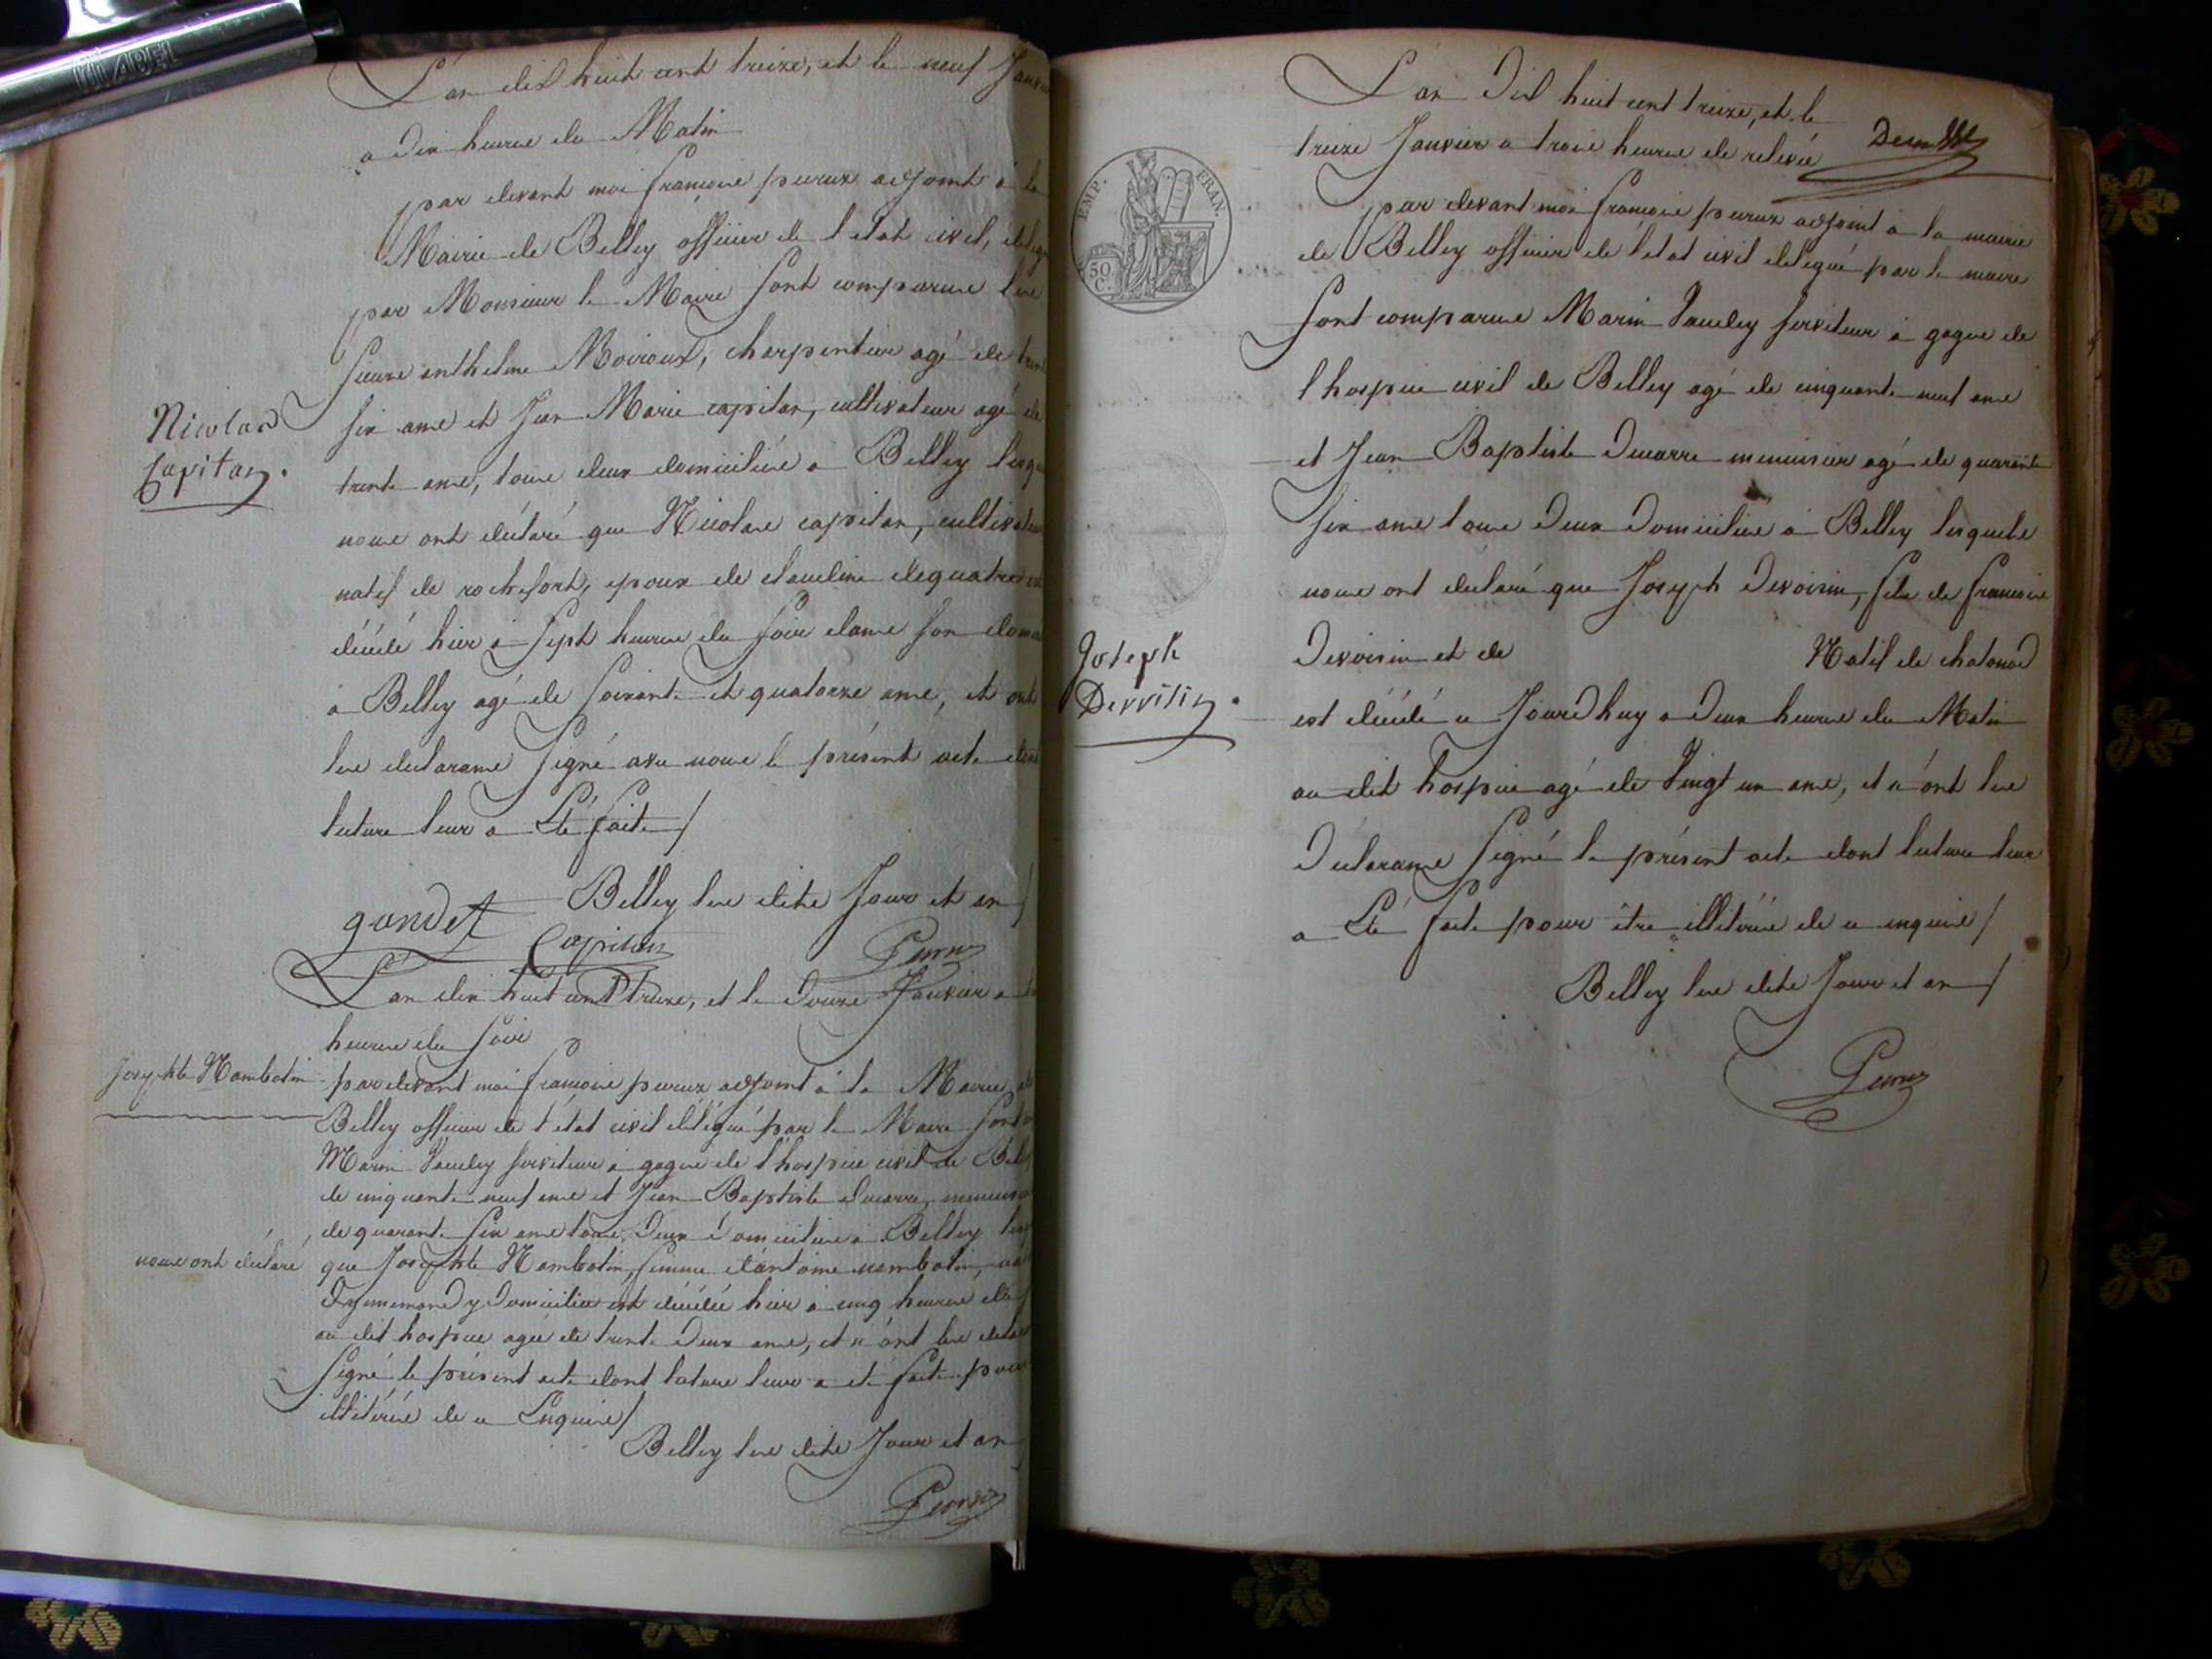 L'an dix huit cent treize, et le neuf Janvier
a dix heures du Matin
par devant moi françois peroux adjoint à la
Mairie de Belley officier de l'etat civil, delegué
par Monsieur le Maire sont comparus les
sieurs anthelme Moiroux, charpentier agé de
Nicolas
Capitan.
six ans et Jean Marie capitan, cultivateur agé de
trente ans, tous deux domiciliés a Belley
nous ont déclaré que Nicolas capitan, cultivateur
natif de rochefort, epoux de claudine
décédé hier a sept heures du soir dans son
a Belley agé de soixante et quatorze ans, et ont
les declarans signé avec nous le présent acte dont
lecture leur a Eté faite /
Belley les dits Jour et an /
Capitan
L'an dix huit cent treize, et le douze Janvier a
heures du soir
Josephte Nambotin
par devant moi françois peroux adjoint à la Mairie de
Belley officier de l'état civil délégué par le Maire sont
Marin serviteur à gages de l'hospice civil de Belley
de cinquante neuf ans et Jean Baptiste Ducarre, menuisier
de quarante six ans tous deux domiciliés a Belley
nous ont déclaré
que Josephte Nambotin, femme d'antoine nambotin,
y domiciliée est décédée hier à cinq heures du
au dit hospice agée de trente deux ans, et n'ont les
signé le présent acte dont lecture leur a eté faite pour
illitérés de ce Enquis /
Belley les dits Jour et an
L'an dix huit cent treize, et le
treize Janvier a trois heures de relevée
EMP. FRAN.
50 C.
par devant moi françois peroux adjoint à la mairie
de Belley officier de l'etat civil delegué par le maire
sont comparus Marin serviteur à gages de
l'hospice civil de Belley agé de cinquante neuf ans
et Jean Baptiste Ducarre menuisier agé de quarante
six ans tous deux domiciliés à Belley lesquels
nous ont declaré que Joseph Devoisin, fils de francois
Joseph
Devoisin.
Devoisin et de Natif de chatonod
est décédé ce Jourd'huy a deux heures du Matin
au dit hospice agé de Vingt un ans, et n'ont les
Déclarans signé le présent acte dont lecture leur
a Eté faite pour être illitérés de ce enquis /
Belley les dits Jour et an /